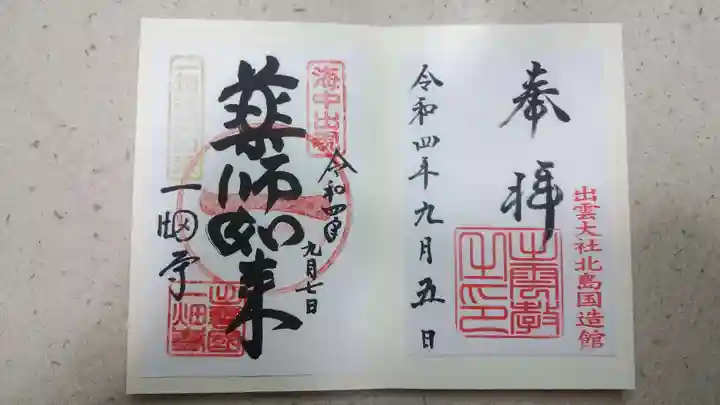 奉拝
出雲大社北島国造館
出雲教之印
令和四年九月五日
海中出現
令和四年
九月七日
薬師如来
一畑寺